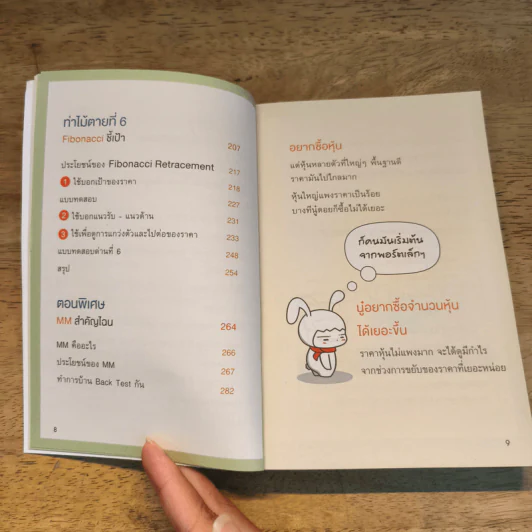 ท่าไม้ตายที่ 6
Fibonacci ชี้เป้า 207
ประโยชน์ของ Fibonacci Retracement 217
1 ใช้บอกเป้าของราคา 218
แบบทดสอบ 227
2 ใช้บอกแนวรับ - แนวต้าน 231
3 ใช้เพื่อดูการแกว่งตัวและไปต่อของราคา 233
แบบทดสอบด่านที่ 6 248
สรุป 254
ตอนพิเศษ
MM สำคัญไฉน 264
MM คืออะไร 266
ประโยชน์ของ MM 267
ทำการบ้าน Back Test กัน 282
8
อยากซื้อหุ้น
แต่หุ้นหลายตัวที่ใหญ่ๆ พื้นฐานดี
ราคามันไปไกลมาก
หุ้นใหญ่แพงราคาเป็นร้อย
บางทีนู๋ดอยก็ซื้อไม่ได้เยอะ
ก็คนมันเริ่มต้น
จากพอร์ตเล็กๆ
นู๋อยากซื้อจำนวนหุ้น
ได้เยอะขึ้น
ราคาหุ้นไม่แพงมาก จะได้ดูมีกำไร
จากช่วงการขยับของราคาที่เยอะหน่อย
9